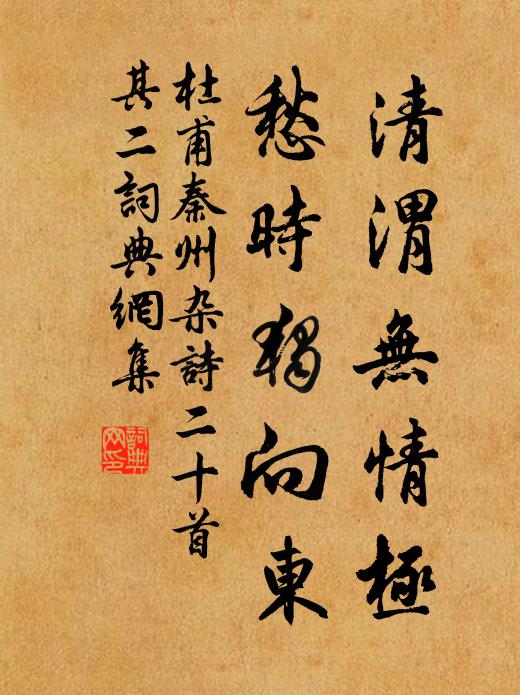 清渭無情極
愁時獨向東
杜甫秦州杂詩二十首
其二詞典網集
詞典
网印